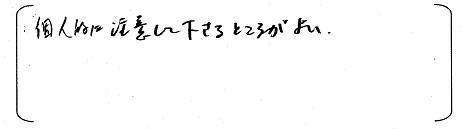 個人的に注意して下さるところがよい.